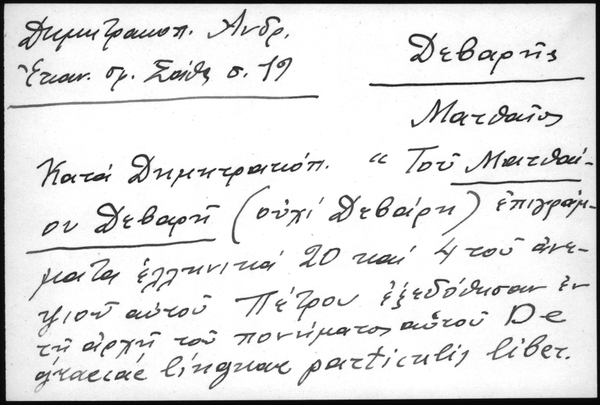 Δημητρακοπ. Ἀνδρ.
Ἐπαν. σφ. Σάθα σ. 19
Δεβαρῆς
Ματθαῖος
Κατά Δημητρακόπ. "Τοῦ Ματθαί-
ου Δεβαρῆ (οὐχί Δεβάρη) ἐπιγράμ-
ματα ἑλληνικά 20 καί 4 τοῦ ἀνε-
ψιοῦ αὐτοῦ Πέτρου ἐξεδόθησαν ἐν
τῇ ἀρχῇ τοῦ πονήματος αὐτοῦ De
graecae linguae particulis liber.